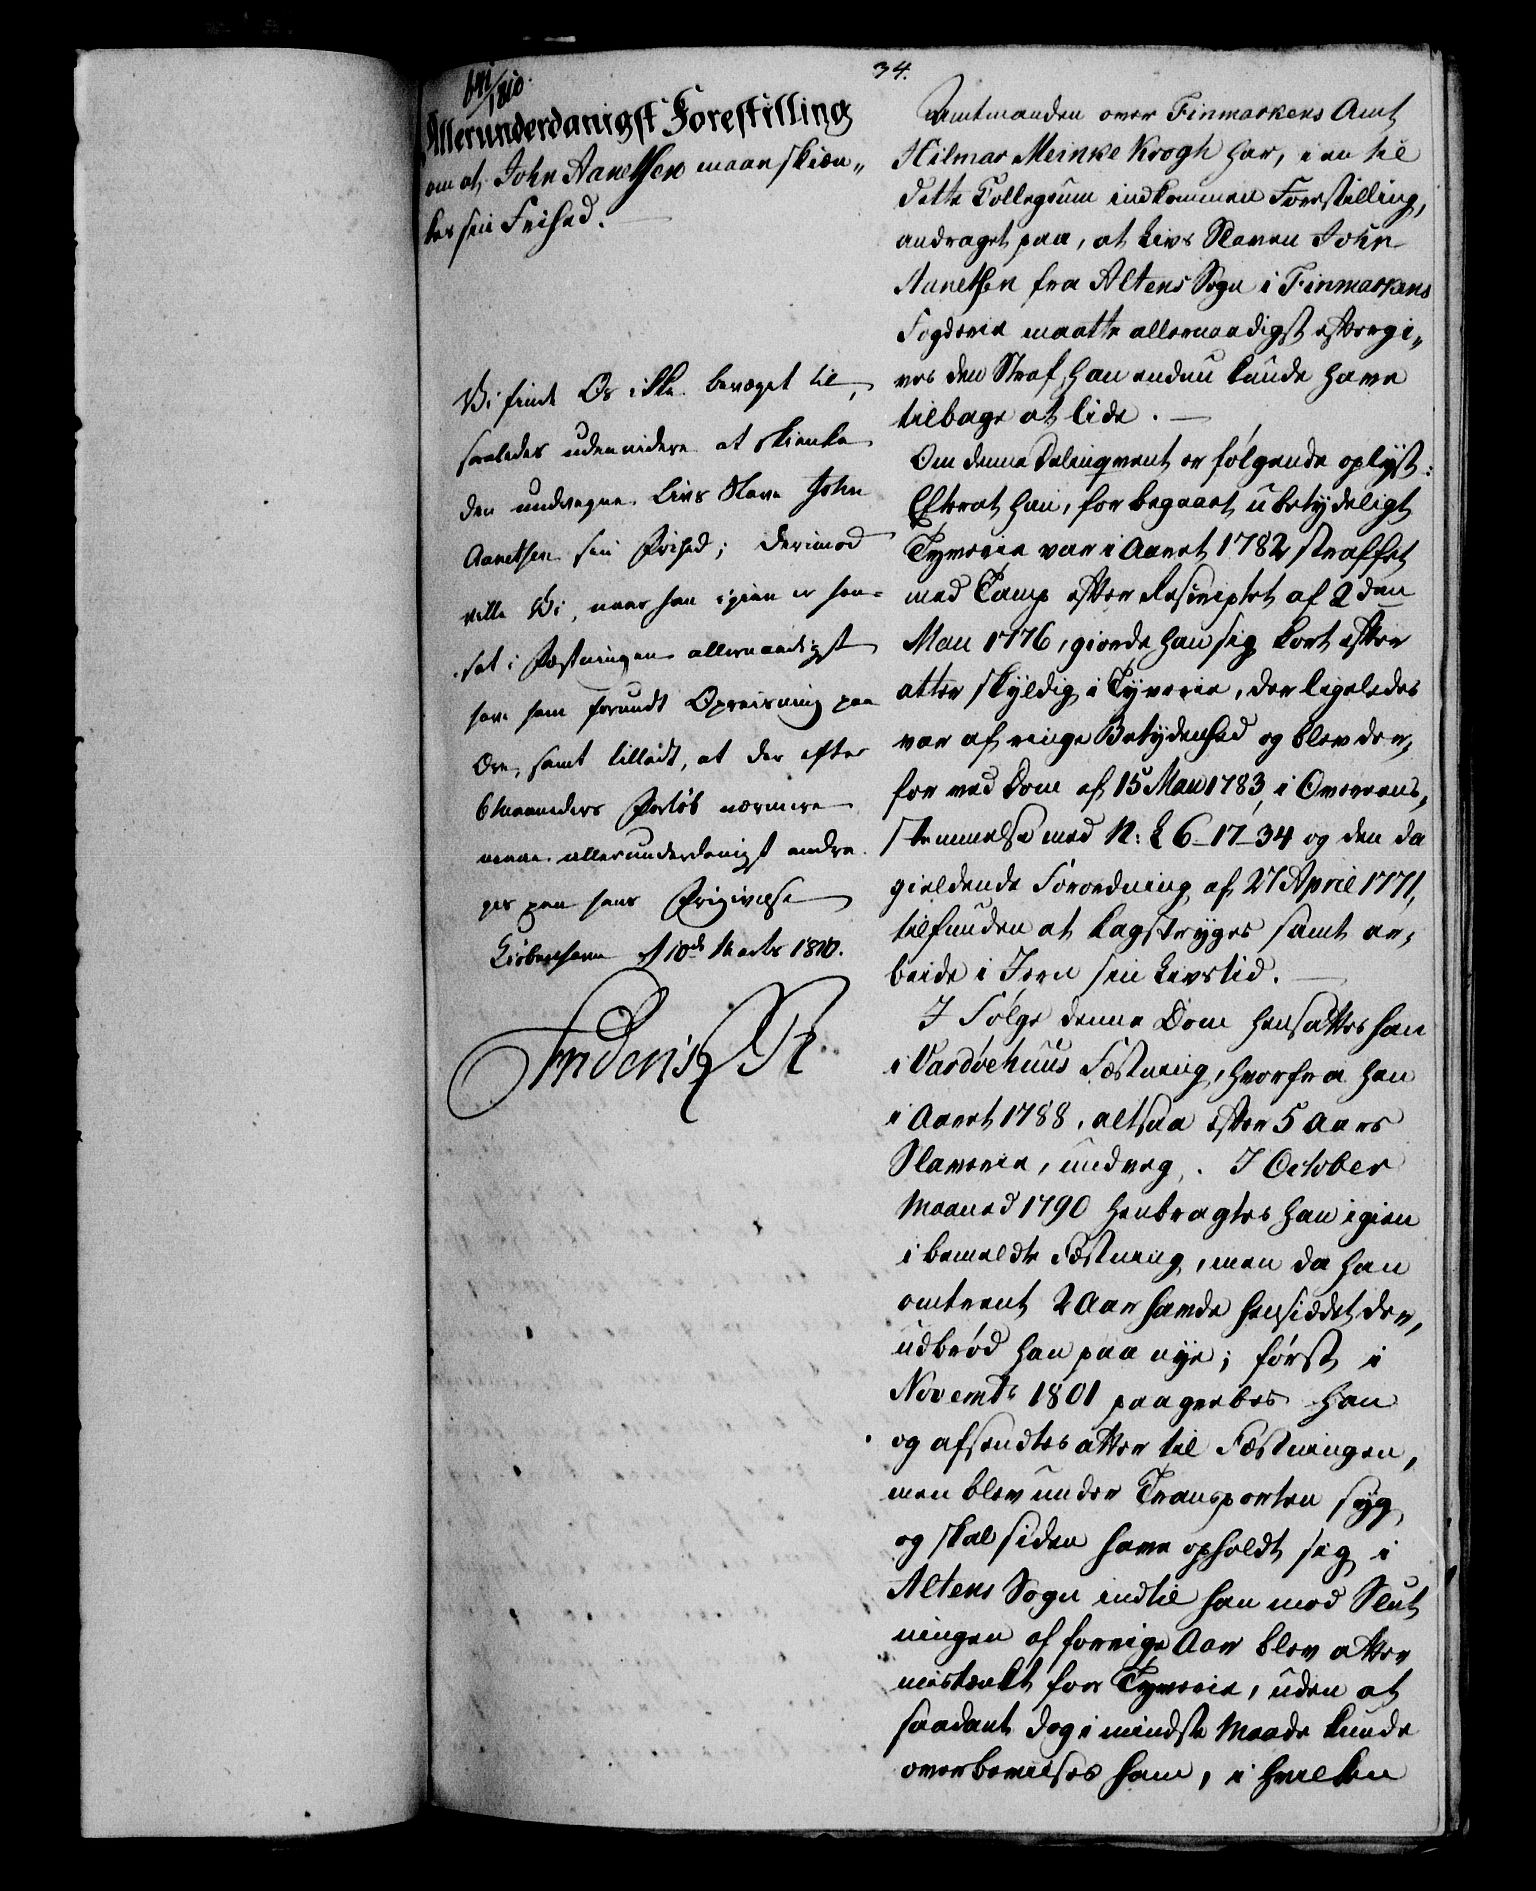 641/1810.
34.
Allerunderdanigst Forestilling
om at John Aanethsen maae skiæn„
kes sin Frihed.
Vi finde Os ikke bevæget til,
saaledes uden videre at skienke
den undvegne Livs Slave John
Aanethsen sin Frihed; derimod
ville Vi, naar han igien er hen-
sat i Fæstningen allernaadigst
have ham forundt Opreisning paa
Ære, samt tilladt, at der efter
6 Maaneders Forløb nærmere
maae allerunderdanigst andra
ges paa hans Frigivelse
Kiøbenhavn d 10de Marts 1810.
Frederik R
Amtmanden over Finmarkens Amt
Hilmar Meinke Krogh har, i en til
dette Collegium indkommen Forestilling,
andraget paa, at Livs Slaven John
Aanethsen fra Altens Sogn i Finmarkens
Fogderie maatte allernaadigst eftergi„
ves den Straf, han endnu kunde have
tilbage at lide.
Om denne Delinqvent er følgende oplyst:
Efterat han, for begaaet ubetydeligt
Tyverie var i Aaret 1782 straffet
med Tamp efter Rescriptet af 2den
Mau 1776, giorde han sig kort efter
atter skyldig i Tyverie, der ligeledes
var af ringe Betydenhed og blev der,
for ved Dom af 15 Mau 1783, i Overeens,
stemmelse med N: L 6-17-34 og den da
gieldende Forordning af 27 April 1771,
tilfunden at kagstryges samt ar,
beide i Jern sin Livstid.
I Følge denne Dom hensattes han
i Vardøehuus Fæstning, hvorfra han
i Aaret 1788, altsaa efter 5 Aars
Slaverie, undveg. I October
Maaned 1790 henbragtes han igien
i bemeldte Fæstning, men da han
omtrent 2 Aar havde hensiddet der,
udbrød han paa nye; først i
Novembr 1801 paagrebes han
og afsendtes atter til Fæstningen,
men blev under Transporten syg,
og skal siden have opholdt sig i
Altens Sogn indtil han mod Slut
ningen af forrige Aar blev atter
mistænkt for Tyverie, uden at
saadant dog i mindste Maade kunde
overbevises ham, i hvilken